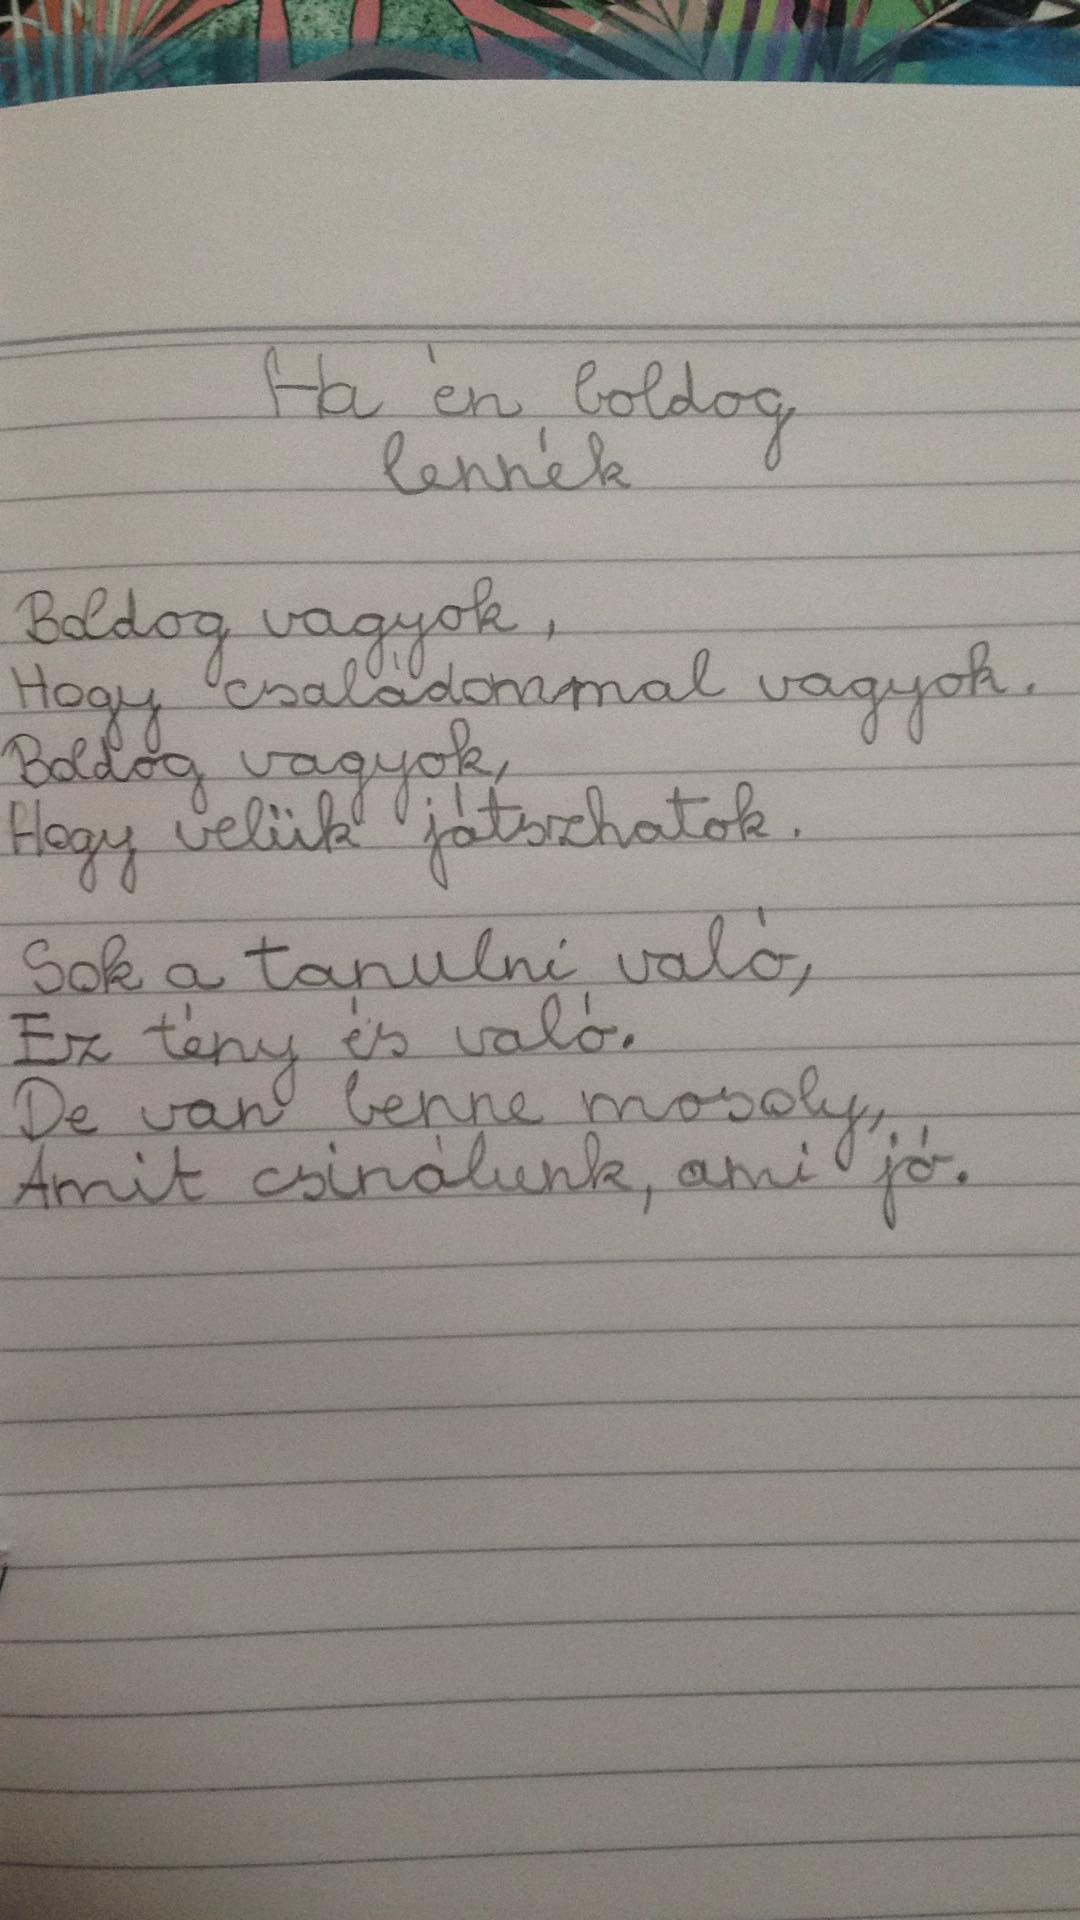 Ha én boldog
lennék
Boldog vagyok,
Hogy családommal vagyok.
Boldog vagyok,
Hogy velük játszhatok.
Sok a tanulni való,
Ez tény és való.
De van benne mosoly,
Amit csinálunk, ami jó.